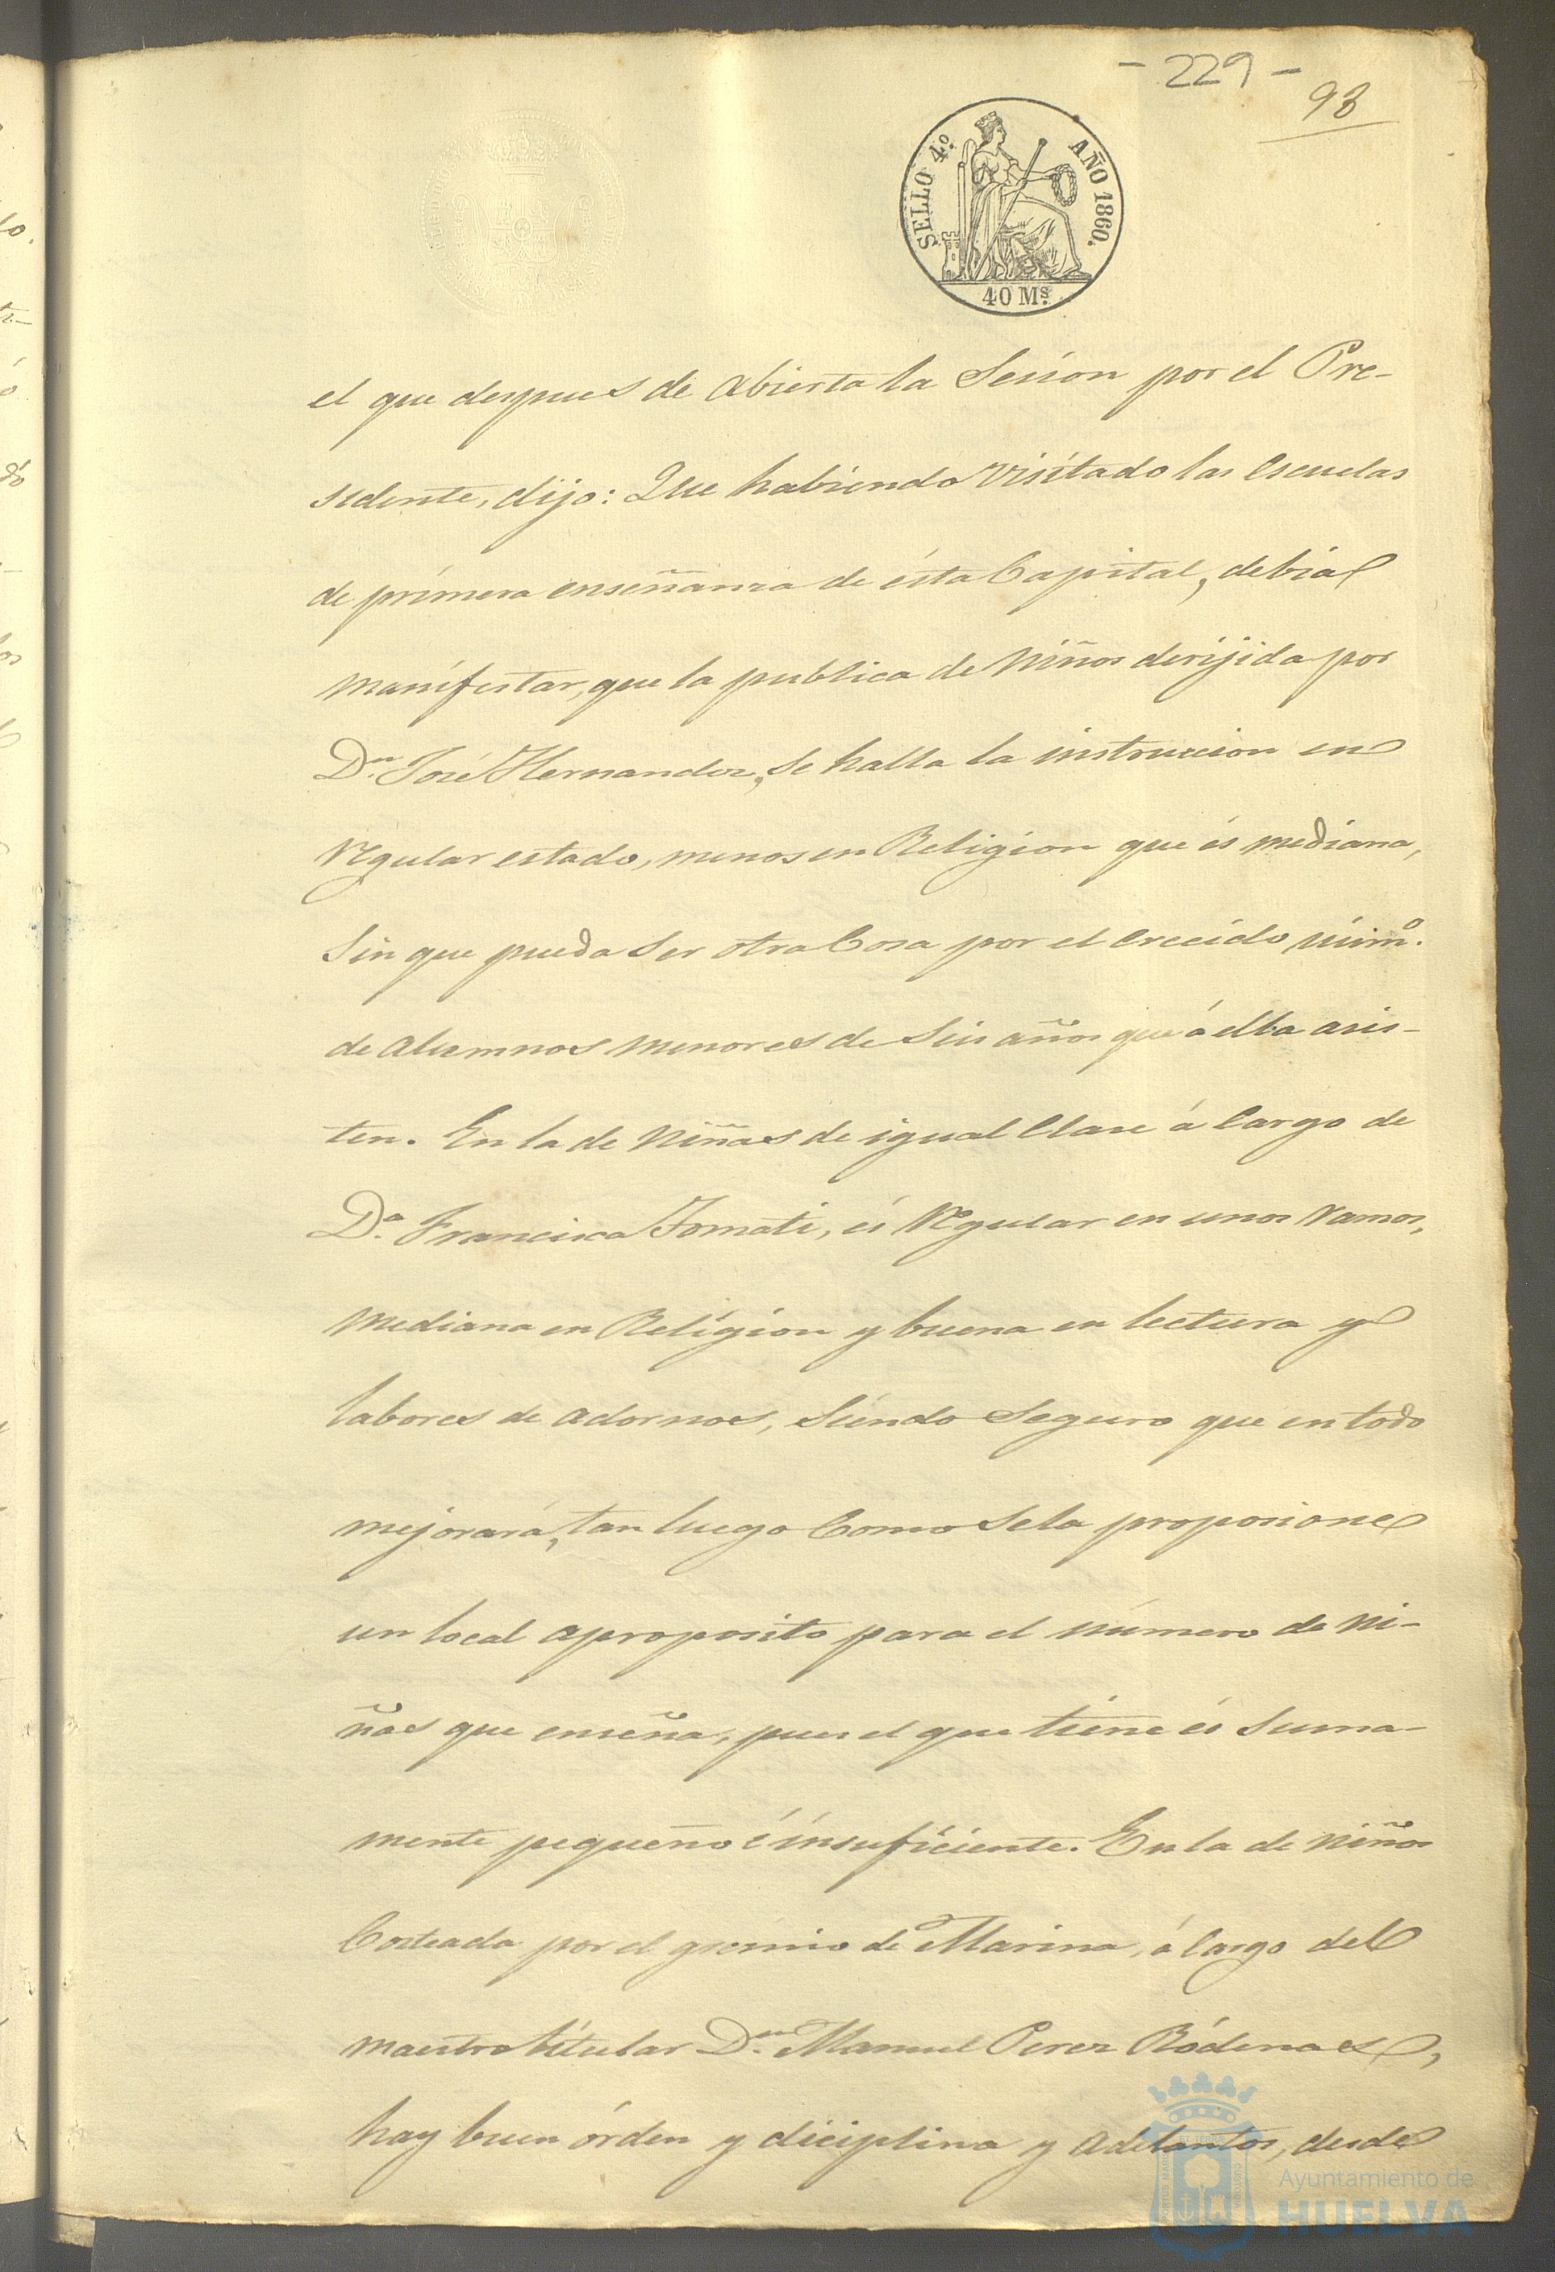 - 229 -
93
SELLO 4º AÑO 1860.
40 Mˢ
el que despues de abierta la Sesion por el Pre-
sidente, dijo: Que habiendo visitado las escuelas
de primera enseñanza de ésta Capital, debia
manifestar, que la publica de Niños derijida por
Dⁿ José Hernandez, se halla la instruccion en
regular estado, menos en Religion que és mediana,
sin que pueda ser otra Cosa por el crecido númº
de alumnos menores de Seis años que á ella asis-
ten. En la de Niñas de igual Clase á Cargo de
Dª Francisca, és regular en unos ramos,
mediana en Religion y buena en lectura y
labores de adornos, Siendo Seguro que en todo
mejorará, tan luego Como se la proposione
un local aproposito para el número de Ni-
ñas que enseña, pues el que tiene és Suma-
mente pequeño é insuficiente. En la de niños
Costeada por el gremio de Marina, á Cargo del
maestro titular Dⁿ Manuel Perez Ródenas,
hay buen órden y diciplina y adelantos, desde
Ayuntamiento de
HUELVA